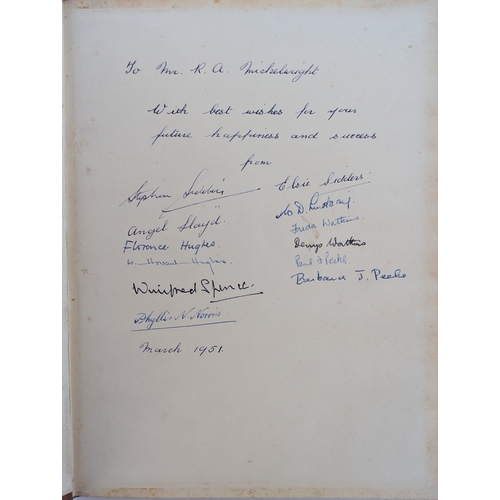 To Mr. R. A. Mickelwright
With best wishes for your
future happiness and success
from
Stephen Sidders
Elsie Sidders.
Angel Lloyd.
Florence Hughes.
W. Howard Hughes.
Winifred Spence.
Phyllis N. Norris
D. Lindsay.
Freda Watkins.
Denys Watkins
Paul J Peeke
Barbara J. Peeke
March 1951.